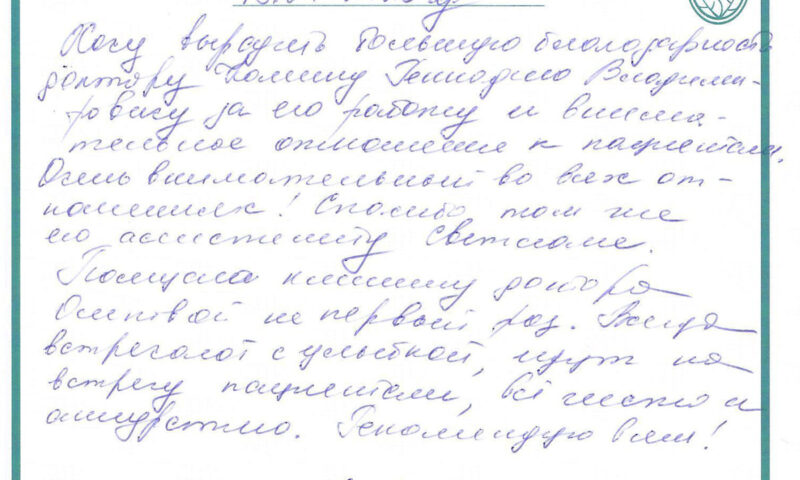 Хочу выразить большую благодарность
доктору Геннадию Владими-
ровичу за его работу и внима-
тельное отношение к пациентам.
Очень внимательный во всех от-
ношениях! Спасибо так же
его ассистенту Светлане.
Посещала клинику доктора
Осиповой не первый раз. Всегда
встречают с улыбкой, идут на
встречу пациентам, всё чисто и
аккуратно. Рекомендую всем!